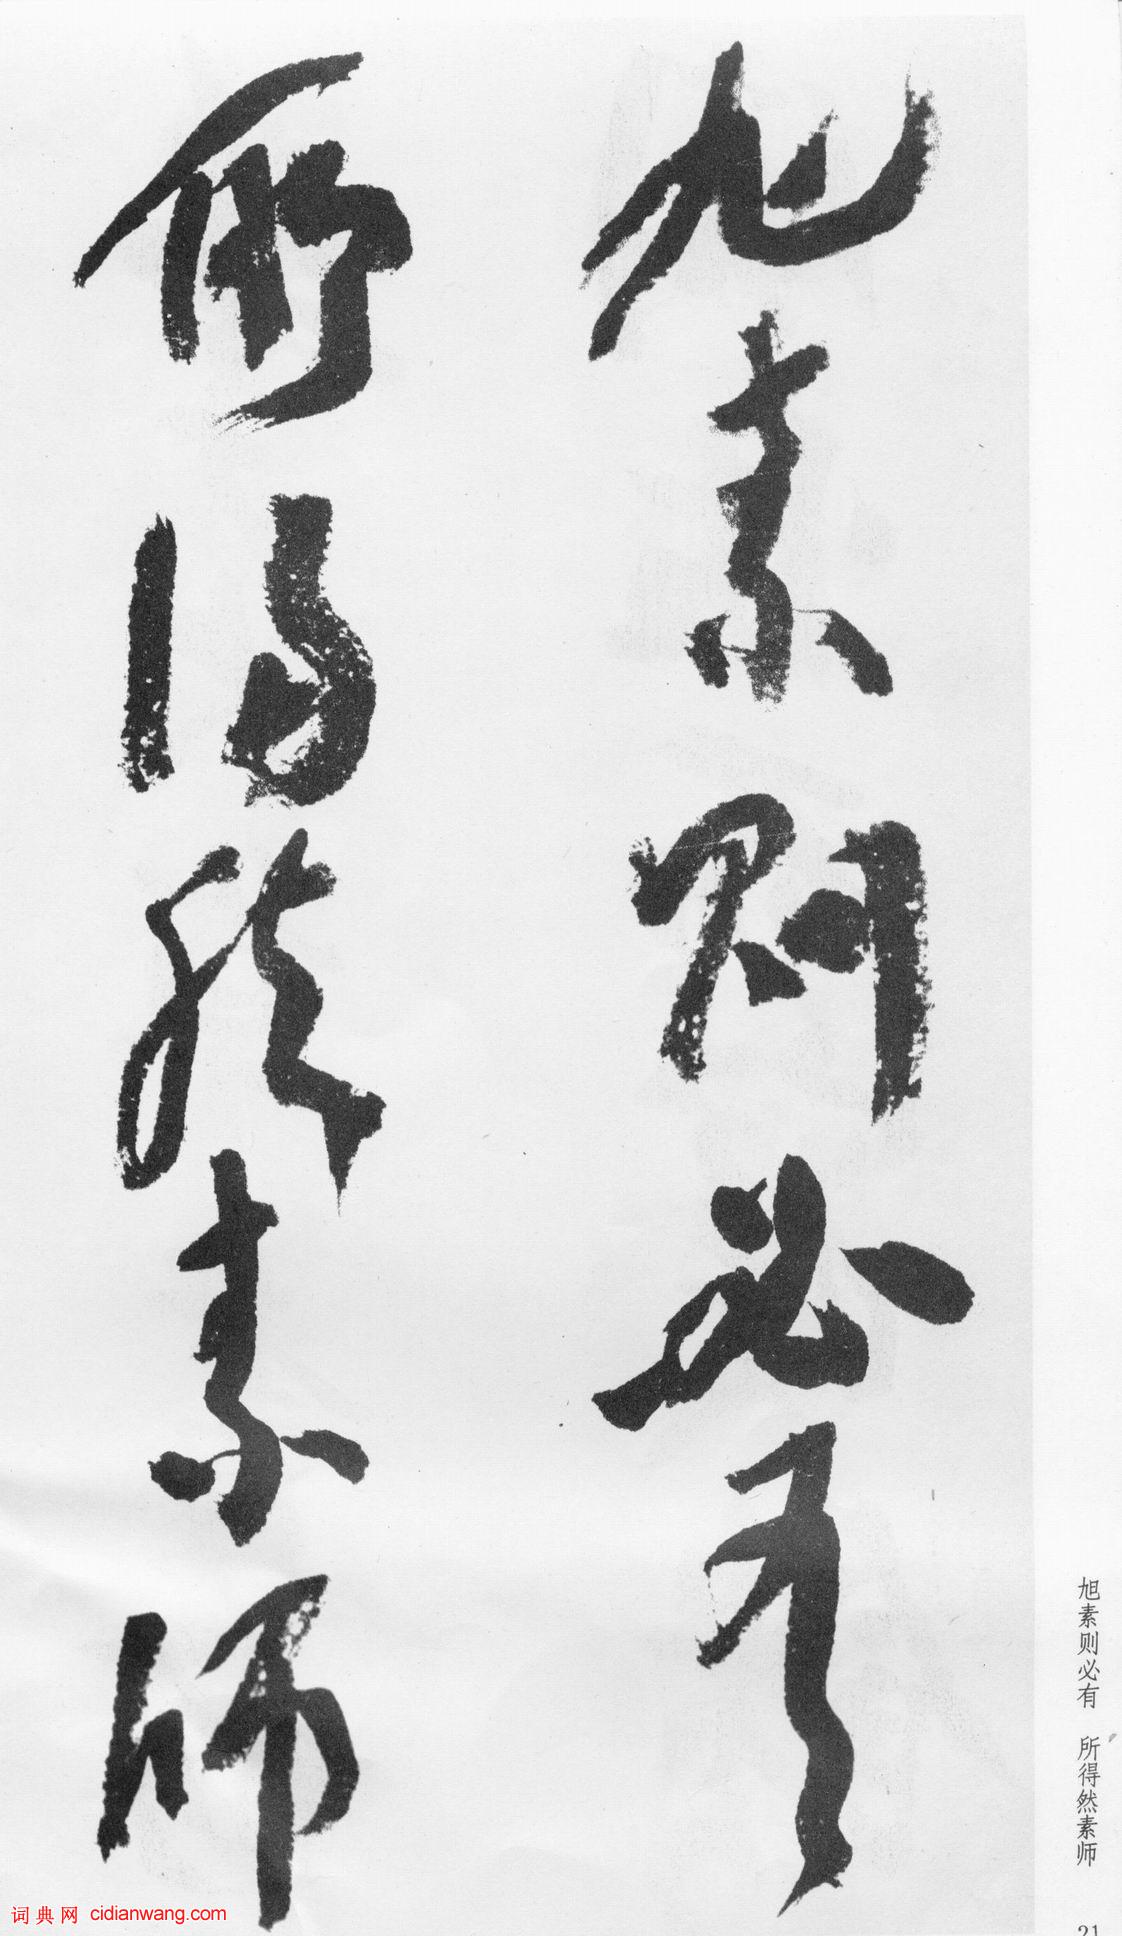 旭素則必有
所得然素師
旭素则必有 所得然素师
21
词典网 cidianwang.com